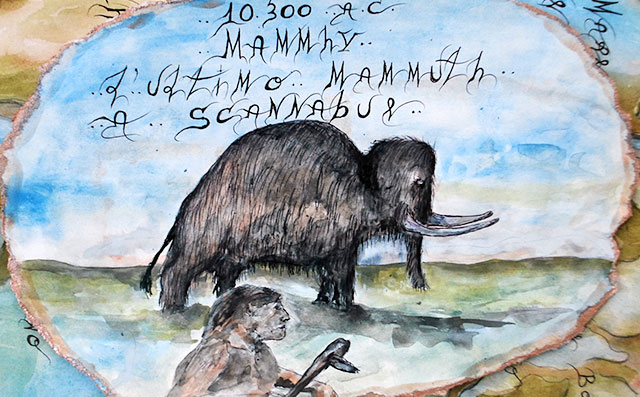 ..10.300 A.C
..MAMMhY..
..L'ULTIMO.. MAMMUTH..
..A.. SCANNABUE..